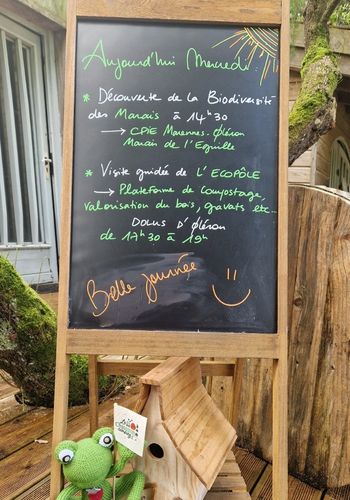 Aujourd'hui Mercredi.
* Découverte de la Biodiversité
des Marais à 14h30
→ CPIE Marennes-Oléron
Marais de l'Eguille
* Visite guidée de L'ECOPÔLE
→ Plateforme de compostage,
valorisation du bois, gravats etc...
DOLUS D'Oléron
de 17h30 à 19h
Belle journée